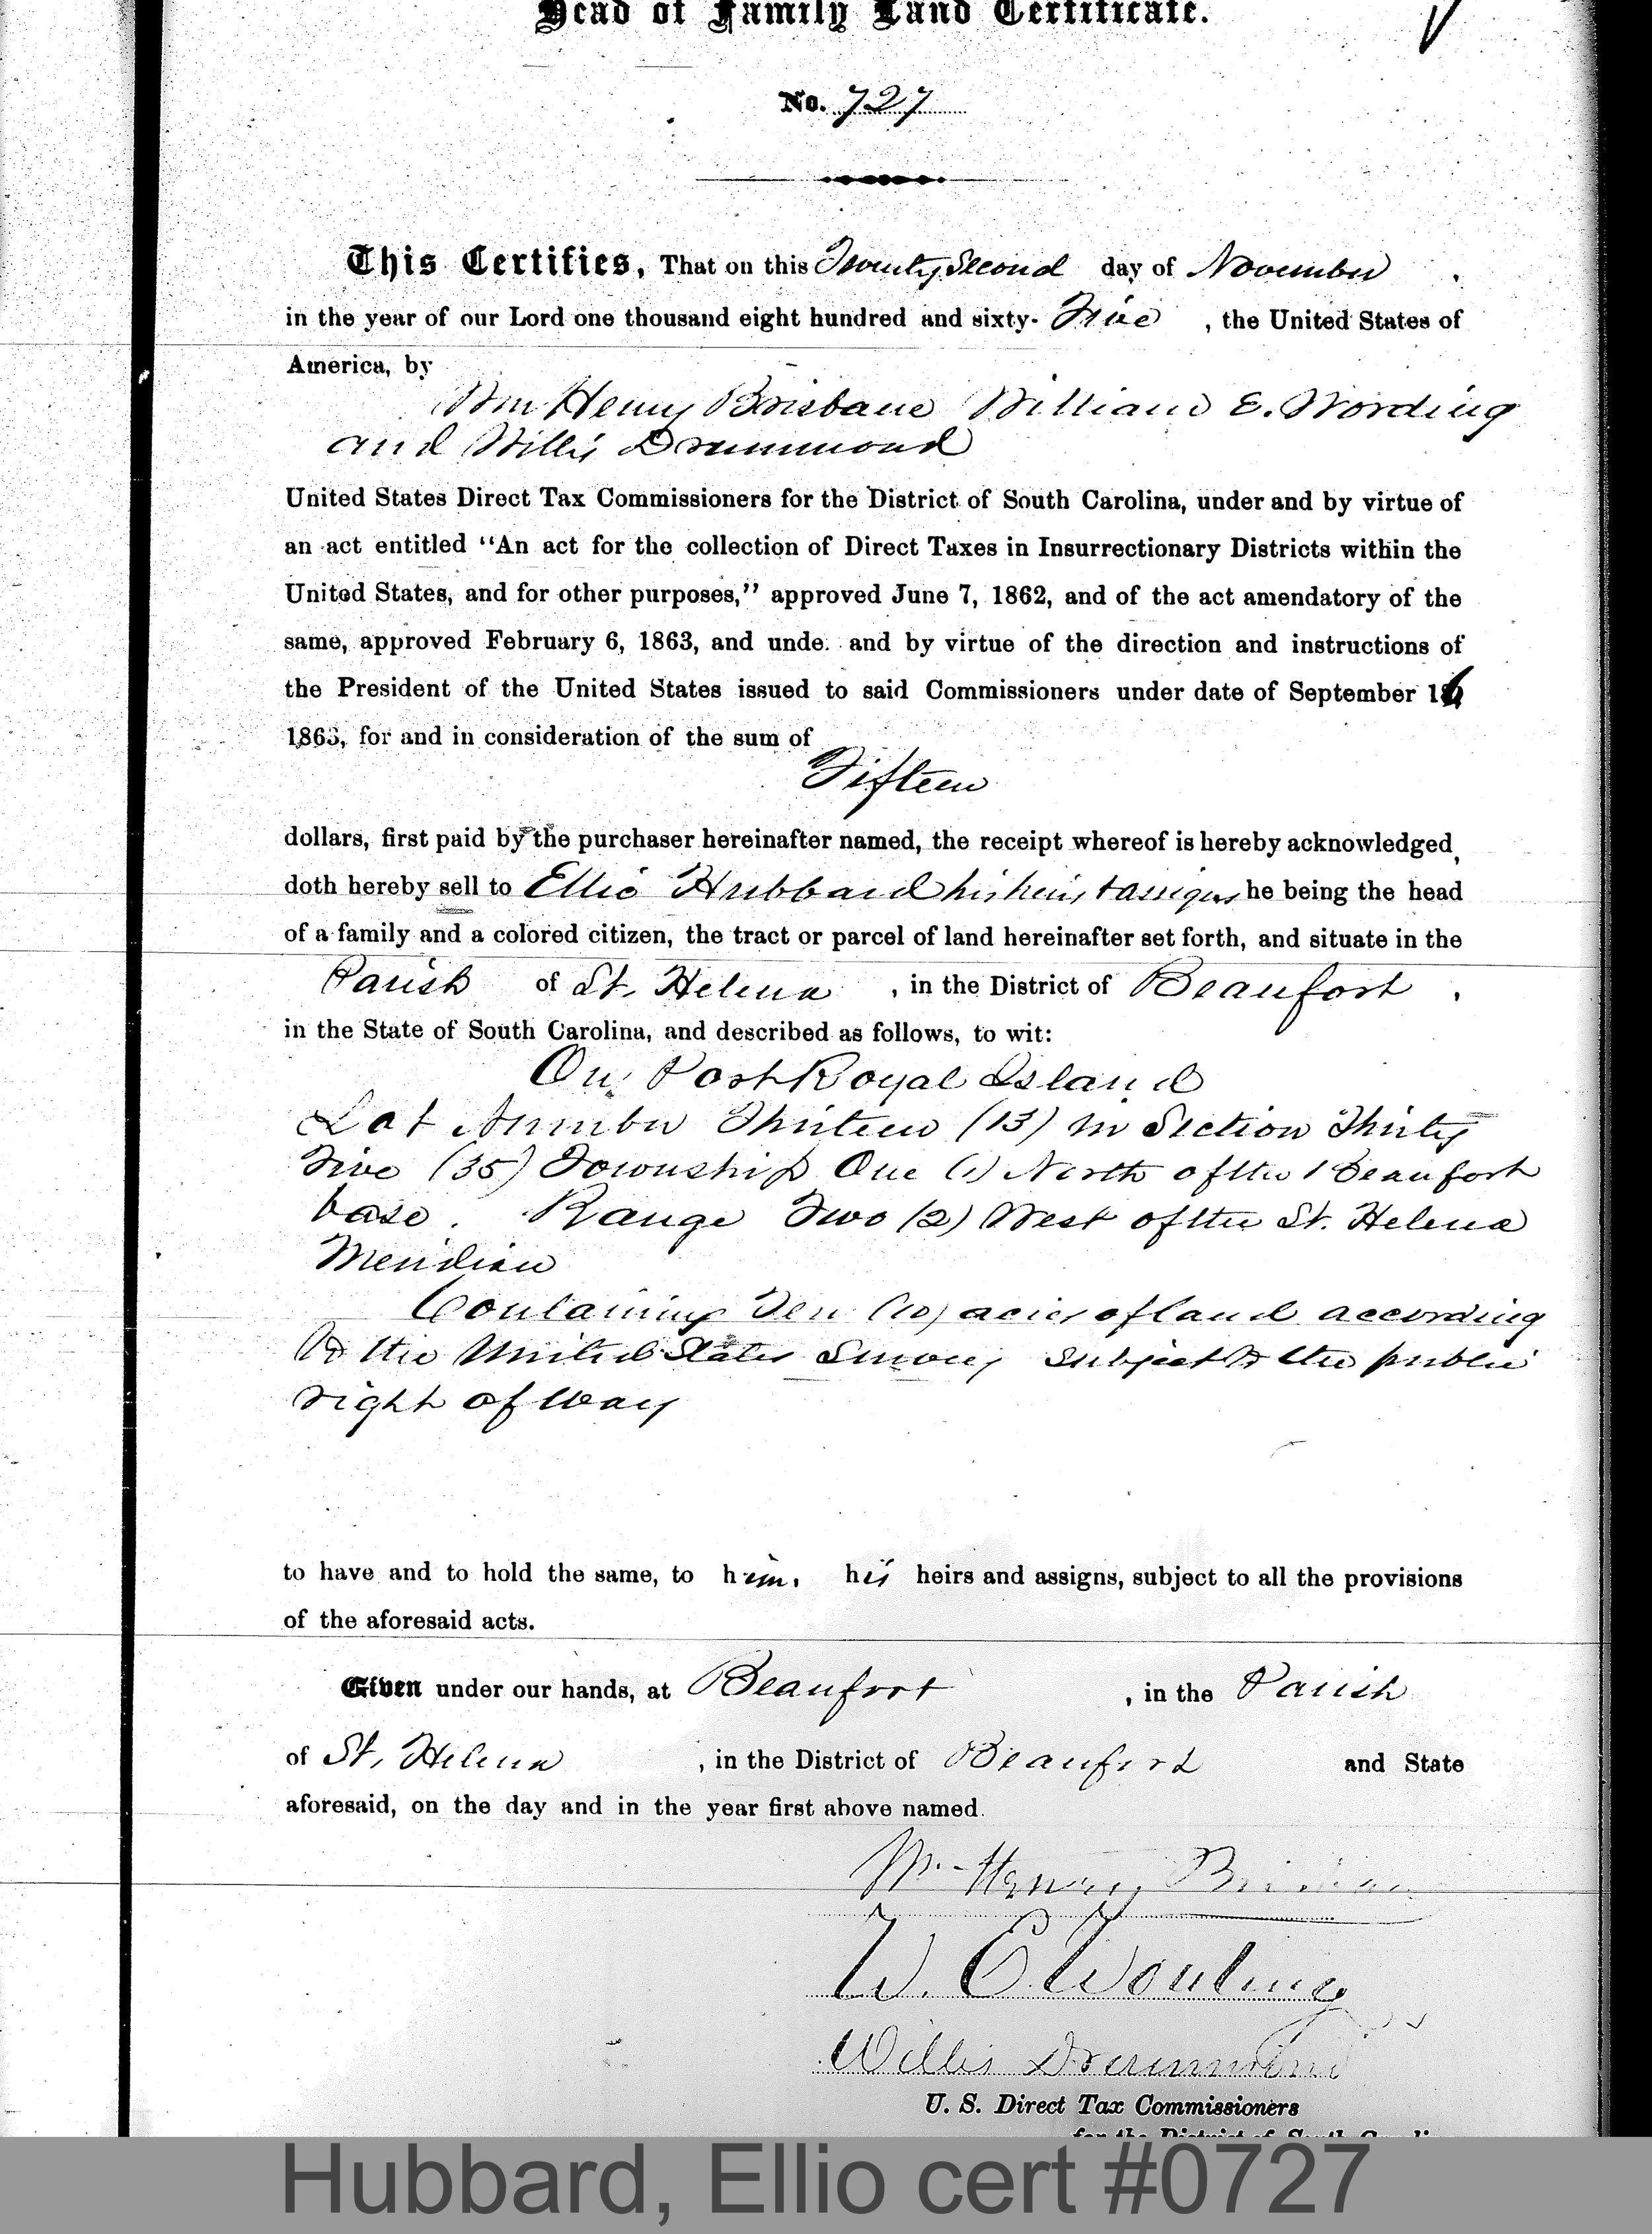 Head of Family Land Certificate.
No. 727
This Certifies, That on this Twenty Second day of November
in the year of our Lord one thousand eight hundred and sixty- Five , the United States of
America, by
Wm Henry Brisbane William E. Wording
and Willis Drummond
United States Direct Tax Commissioners for the District of South Carolina, under and by virtue of
an act entitled "An act for the collection of Direct Taxes in Insurrectionary Districts within the
United States, and for other purposes," approved June 7, 1862, and of the act amendatory of the
same, approved February 6, 1863, and unde. and by virtue of the direction and instructions of
the President of the United States issued to said Commissioners under date of September 16
1863, for and in consideration of the sum of
Fifteen
dollars, first paid by the purchaser hereinafter named, the receipt whereof is hereby acknowledged,
doth hereby sell to Ellio Hubbard his heirs & assigns he being the head
of a family and a colored citizen, the tract or parcel of land hereinafter set forth, and situate in the
Parish of St. Helena , in the District of Beaufort ,
in the State of South Carolina, and described as follows, to wit:
On Port Royal Island
Lot Number Thirteen (13) in Section Thirty
Five (35) Township One (1) North of the Beaufort
base. Range Two (2) West of the St. Helena
Meridian
Containing Ten (10) acres of land according
to the United States Survey subject to the public
right of way
to have and to hold the same, to him, his heirs and assigns, subject to all the provisions
of the aforesaid acts.
Given under our hands, at Beaufort , in the Parish
of St. Helena , in the District of Beaufort and State
aforesaid, on the day and in the year first above named.
Wm Henry Brisbane
W. E. Wording
Willis Drummond
U. S. Direct Tax Commissioners
for the District of South Carolina
Hubbard, Ellio cert #0727